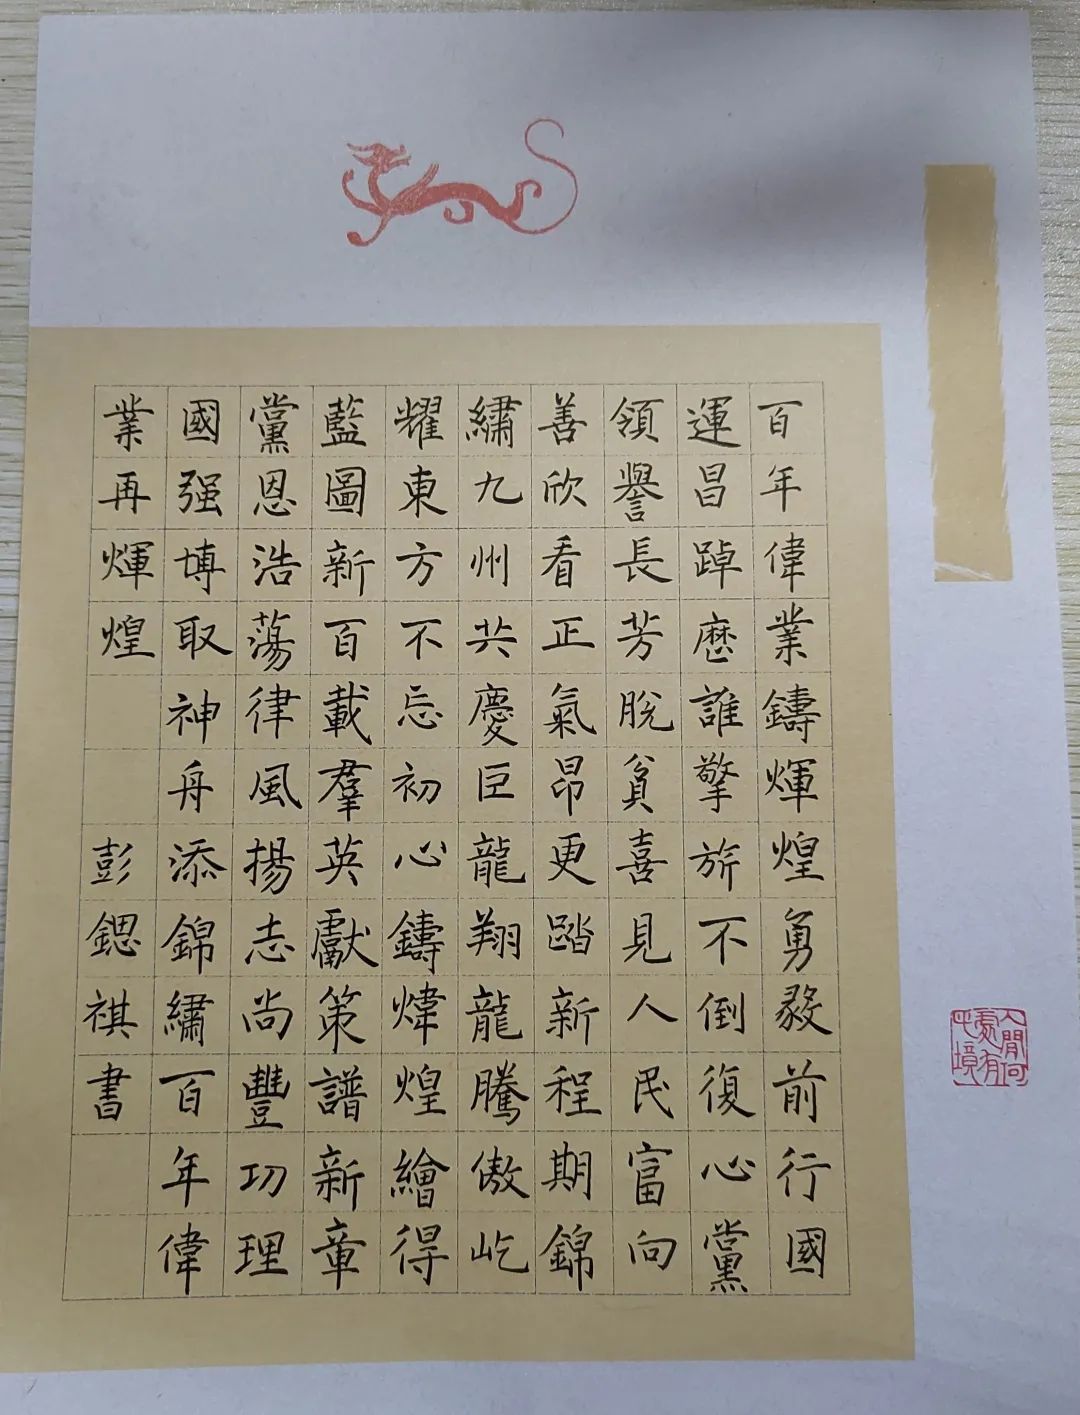 百年偉業鑄輝煌勇毅前行國
運昌踔厯誰擎旂不倒復心黨
領譽長芳脫貧喜見人民富向
善欣看正氣昂更踏新程期錦
繡九州共慶巨龍翔龍騰傲屹
耀東方不忘初心鑄煒煌繪得
藍圖新百載羣英獻策譜新章
黨恩浩蕩律風揚志尚豐功理
國强博取神舟添錦繡百年偉
業再輝煌
彭鍶祺書